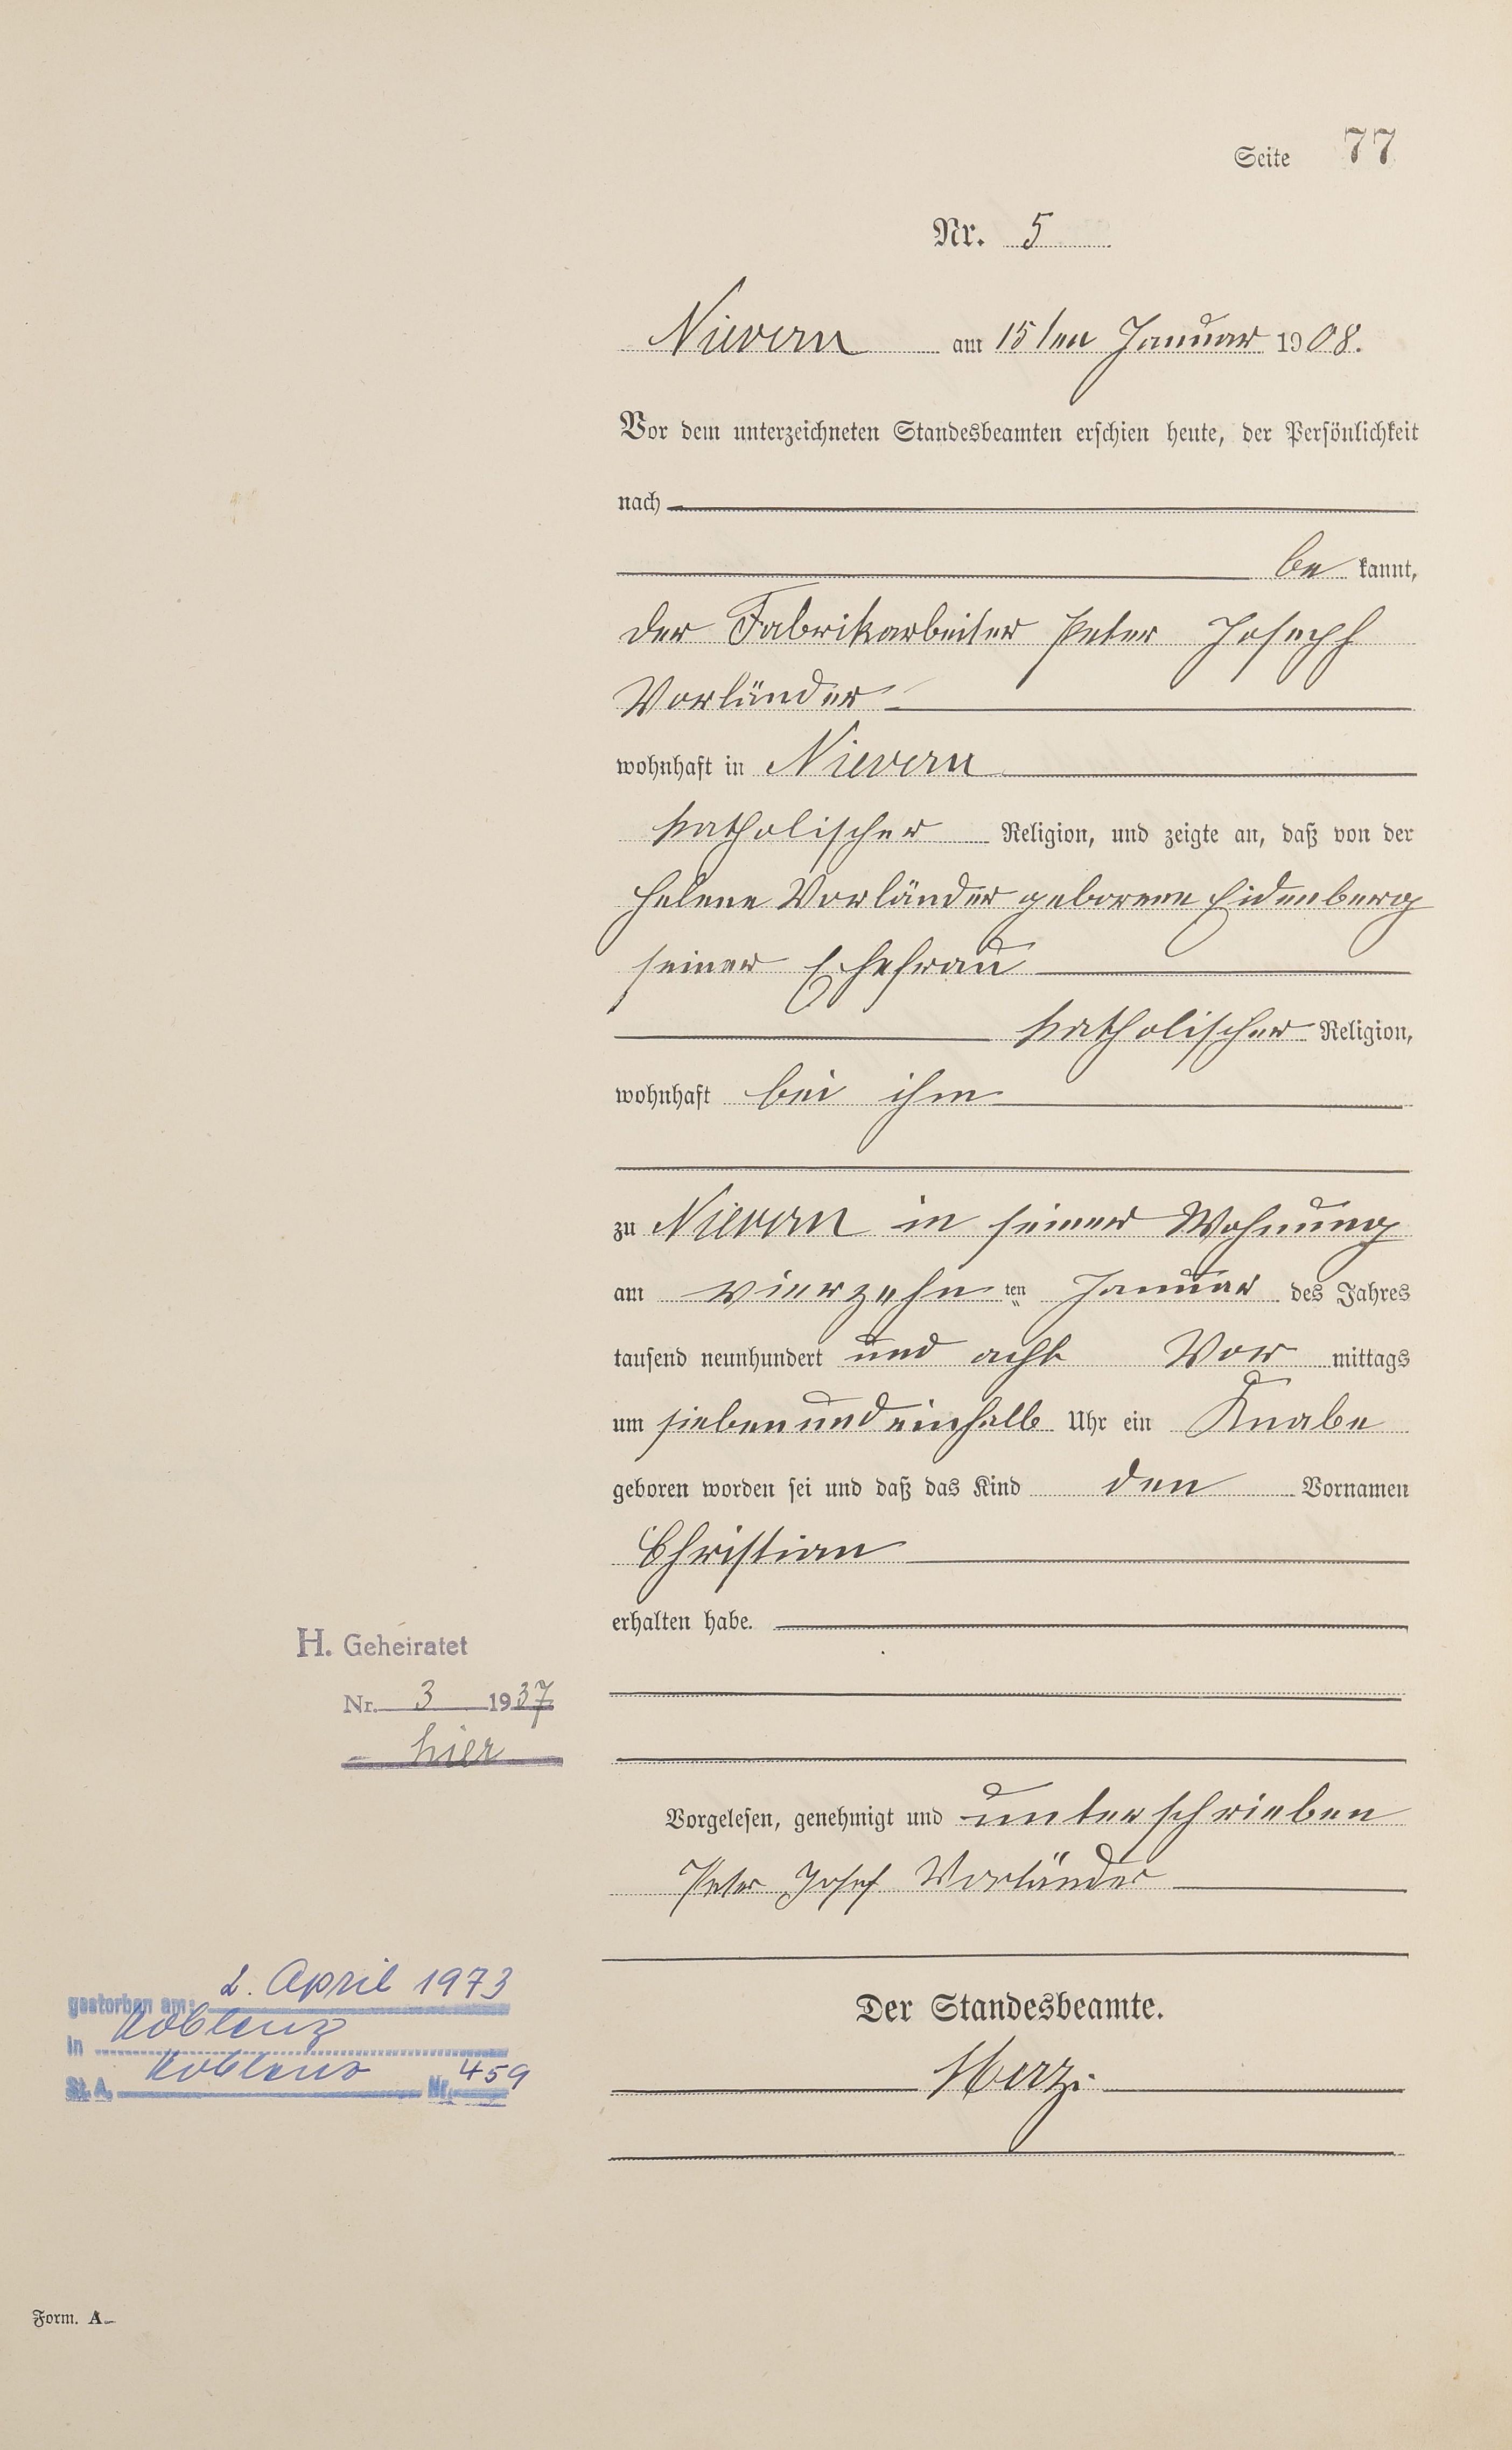 Seite 77
Nr. 5
Nievern am 15ten Januar 1908.
Vor dem unterzeichneten Standesbeamten erschien heute, der Persönlichkeit
nach
be kannt,
der Fabrikarbeiter Peter Joseph
Vorländer
wohnhaft in Nievern
katholischer Religion, und zeigte an, daß von der
Helene Vorländer geborene Eidenberg
seiner Ehefrau
katholischer Religion,
wohnhaft bei ihm
zu Nievern in seiner Wohnung
am vierzehn ten Januar des Jahres
tausend neunhundert und acht Vor mittags
um siebenundeinhalb Uhr ein Knabe
geboren worden sei und daß das Kind den Vornamen
Christian
erhalten habe.
H. Geheiratet
Nr. 3 1937
hier
Vorgelesen, genehmigt und unterschrieben
Peter Josef Vorländer
gestorben am: 2. April 1973
in Koblenz
St. A. Koblenz Nr. 459
Der Standesbeamte.
Herz.
Form. A.